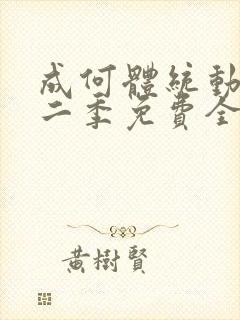 成何體統動
二季免費全
黃樹賢